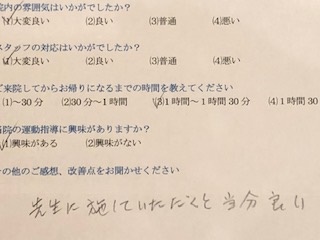 院内の雰囲気はいかがでしたか?
(1)大変良い (2)良い (3)普通 (4)悪い
スタッフの対応はいかがでしたか?
(1)大変良い (2)良い (3)普通 (4)悪い
ご来院してからお帰りになるまでの時間を教えてください
(1)~30分 (2)30分~1時間 (3)1時間~1時間30分 (4)1時間30
当院の運動指導に興味がありますか?
(1)興味がある (2)興味がない
その他のご感想、改善点をお聞かせください
先生に施していただくと当分良い